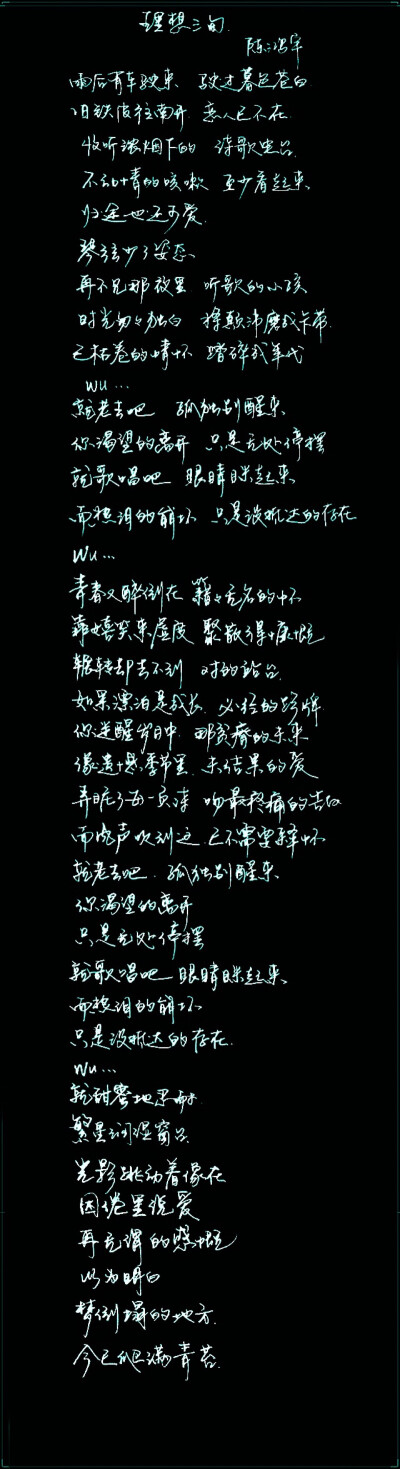 理想三旬
陈鸿宇
雨后有车驶来 驶过暮色苍白
旧铁皮往南开 恋人已不在
收听浓烟下的 诗歌电台
不动情的咳嗽 至少看起来
归途也还可爱
琴弦少了姿态
再不见那夜里 听歌的小孩
时光匆匆独白 将颠沛磨成卡带
已枯卷的情怀 踏碎成年代
wu…
就老去吧 孤独别醒来
你渴望的离开 只是无处停摆
就歌唱吧 眼睛眯起来
而热泪的崩坏 只是没抵达的存在
wu…
青春又醉倒在 籍籍无名的怀
靠嬉笑来虚度 聚散得慷慨
辗转却去不到 对的站台
如果漂泊是成长 必经的路牌
你迷醒岁月中 那贫瘠的未来
像遗憾季节里 未结果的爱
弄脏了每一页诗 吻最疼痛的告白
而风声吹到这 已不需要释怀
就老去吧 孤独别醒来
你渴望的离开
只是无处停摆
就歌唱吧 眼睛眯起来
而热泪的崩坏
只是没抵达的存在
wu…
就甜蜜地忍耐
繁星润湿窗台
光影跳动着像在
困倦里说爱
再无谓的感慨
以为明白
梦倒塌的地方
今已爬满青苔